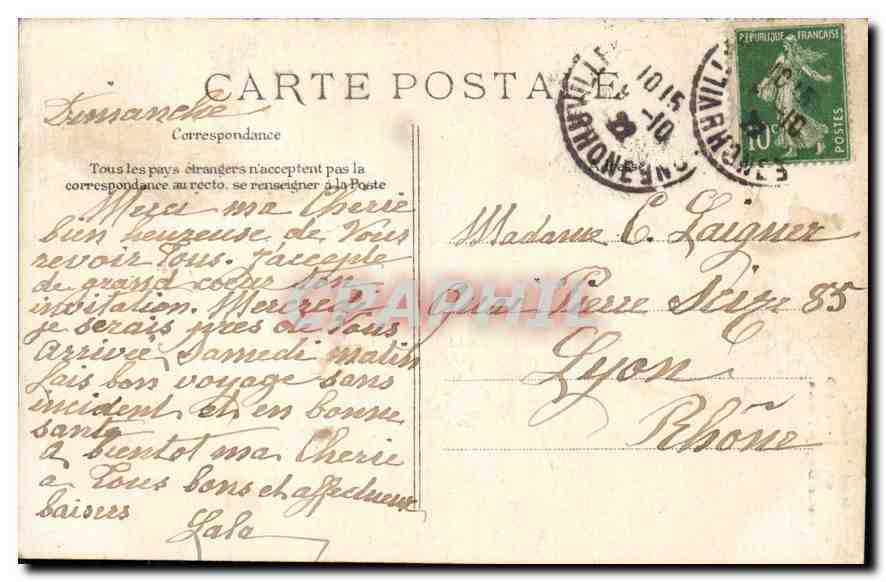 CARTE POSTALE
Dimanche
Correspondance
Tous les pays étrangers n'acceptent pas la
correspondance au recto. se renseigner à la Poste
Merci ma Cherie
bien heureuse de Vous
revoir Tous. j'accepte
de grand coeur ton
invitation. Mercredi
je serais près de Vous
Arrivé Samedi matin
fais bon voyage sans
incident et en bonne
santé
a bientot ma Cherie
a Tous bons et affectueux
baisers
Lala
RÉPUBLIQUE FRANÇAISE
10c
POSTES
10 15
Madame C. Laigner
Quai Pierre Scize 85
Lyon
Rhône
CPAPHIL